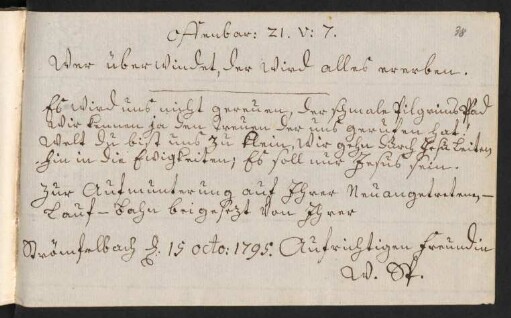 Offenbar: 21. V: 7. 38
Wer überwindet, der wird alles ererben.
Es wird uns nicht gereuen, der schmale Pilgrims Pfad
Wir kennen ja den Treuen der uns geruffen hat!
Welt du bist uns zu klein, wir gehn durch Jesu Leiten
hin in die Ewigkeiten; Es soll nur Jesus sein.
Zur Aufmunterung auf Ihrer Neuangetretene,
Lauf-Bahn beigesezt von Ihrer
Strömfelbach d. 15 octo: 1795. Aufrichtigen Freundin
W. Sp.